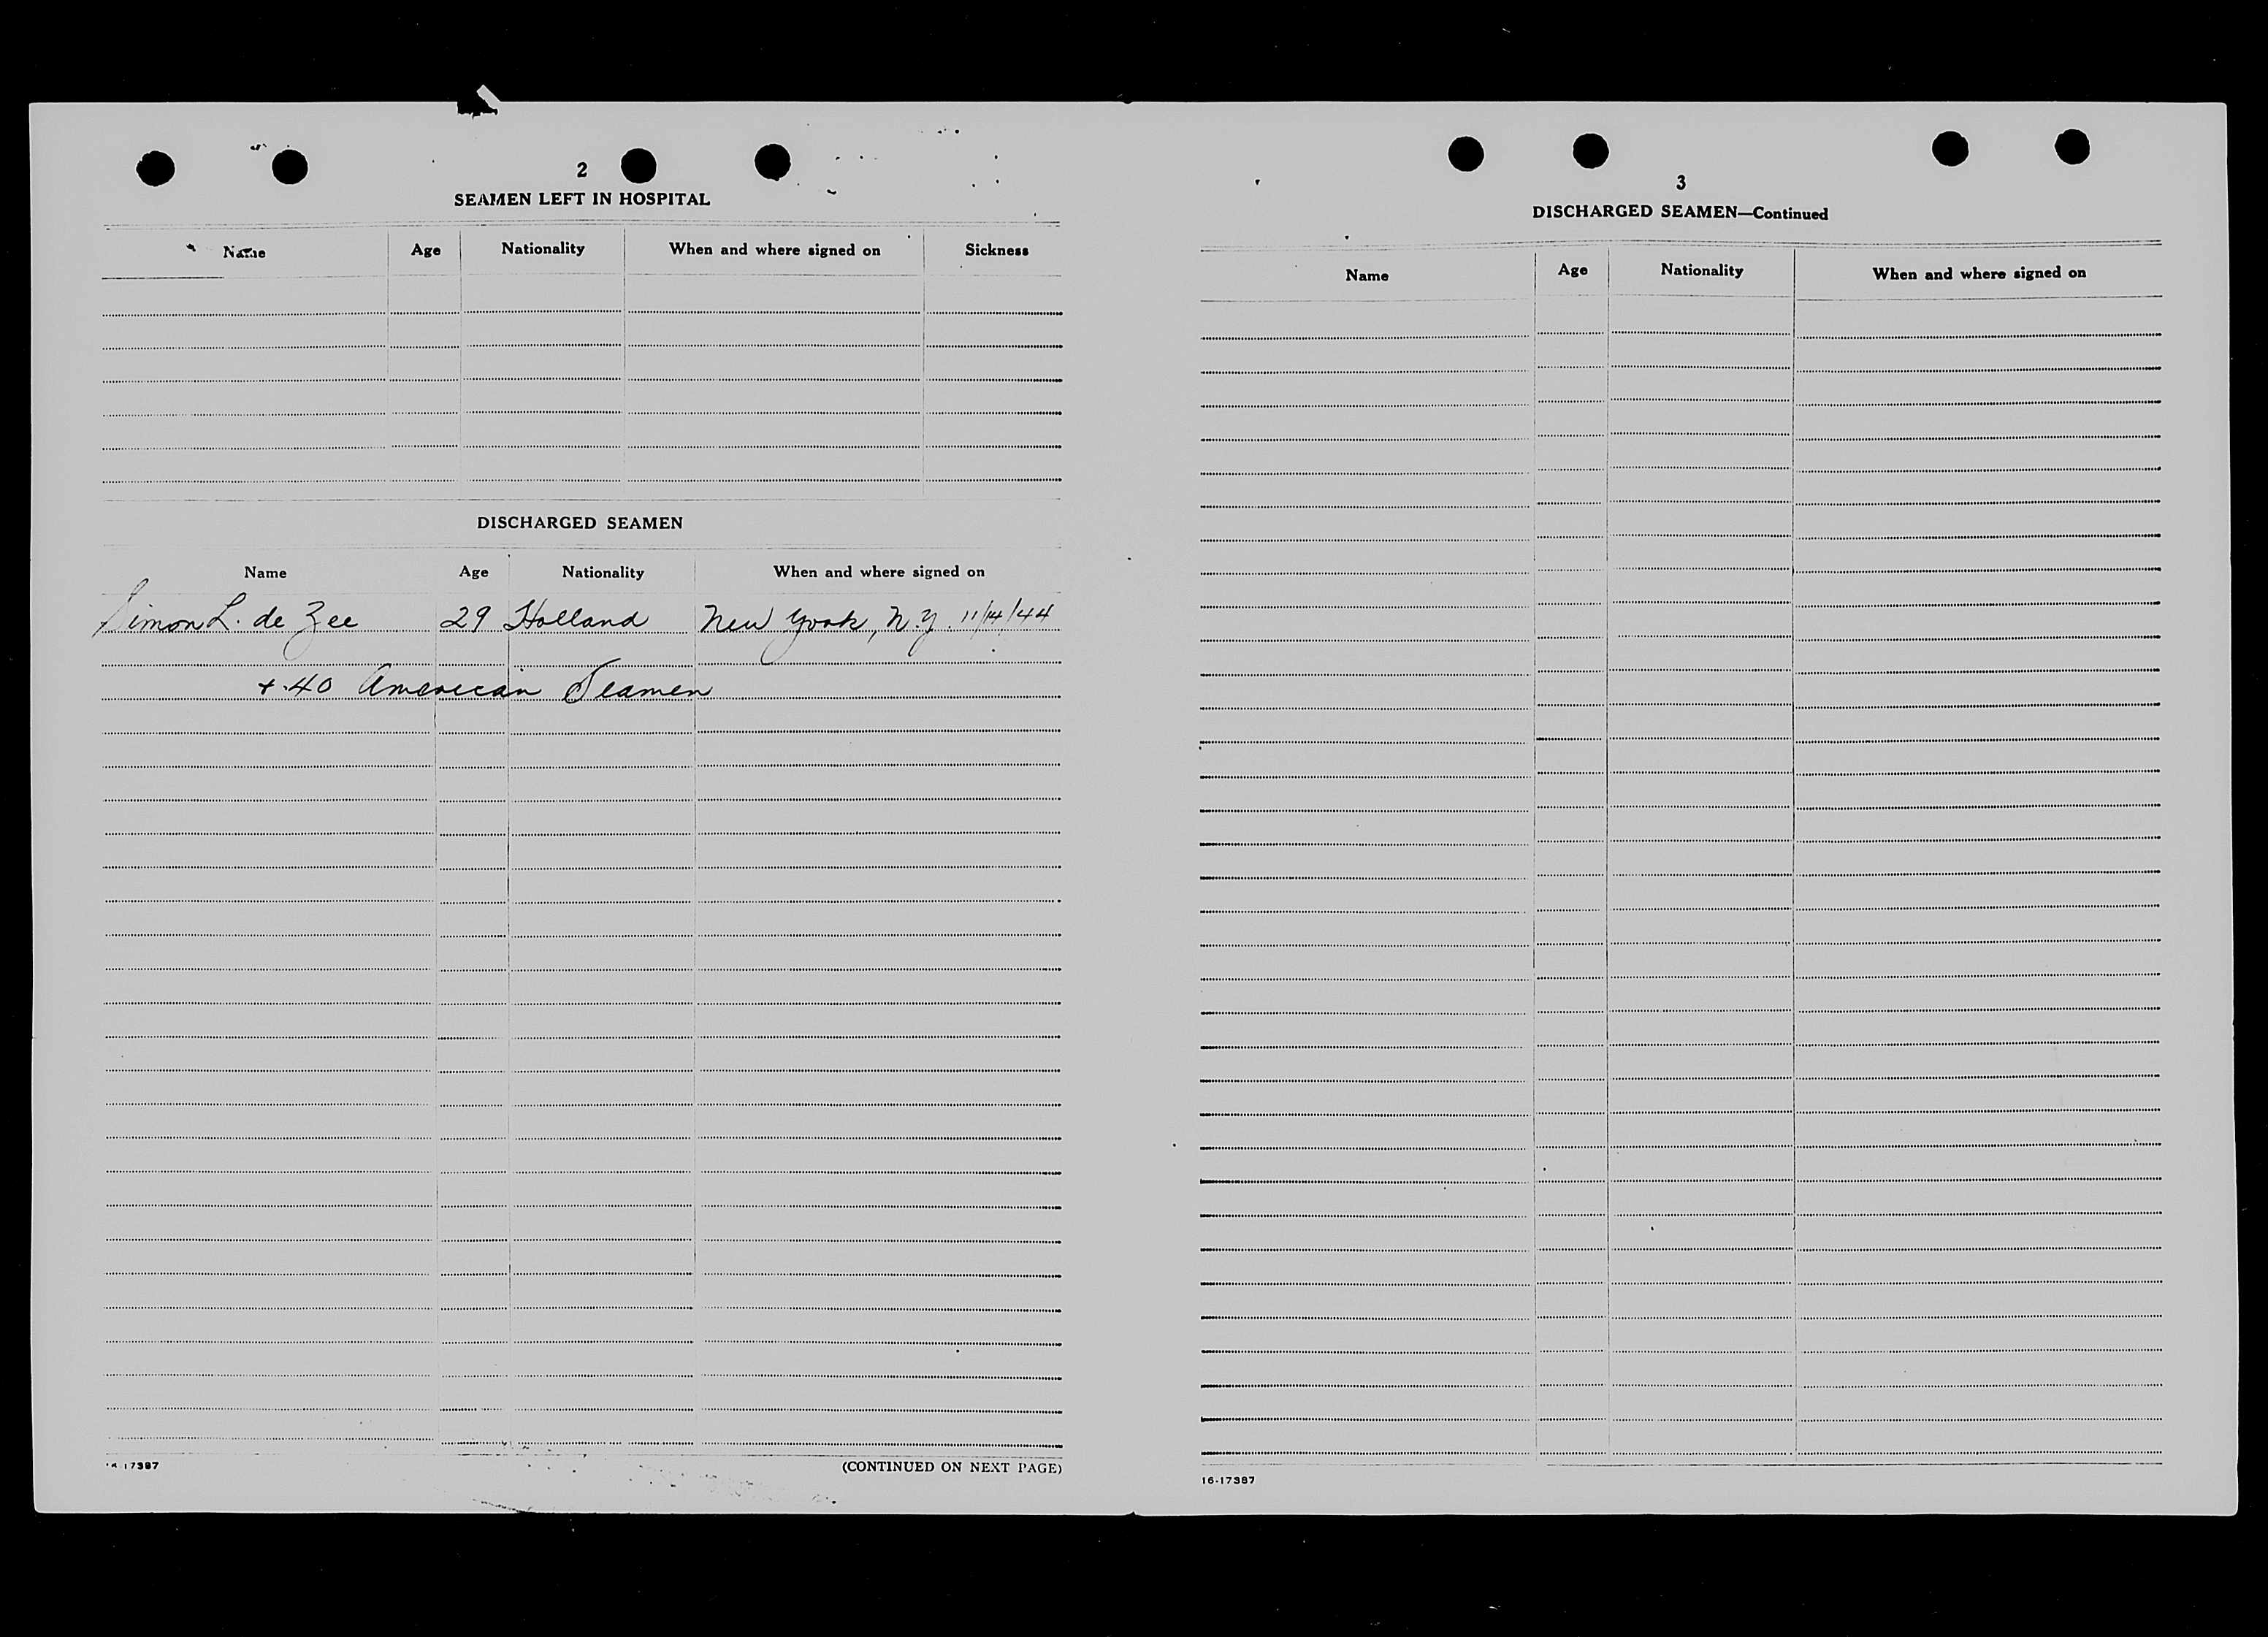 2
SEAMEN LEFT IN HOSPITAL
Name Age Nationality When and where signed on Sickness
DISCHARGED SEAMEN
Name Age Nationality When and where signed on
Simon L. de Zee 29 Holland New York, N.Y. 11/14/44
+ 40 American Seamen
17387 (CONTINUED ON NEXT PAGE)
3
DISCHARGED SEAMEN—Continued
Name Age Nationality When and where signed on
16-17387